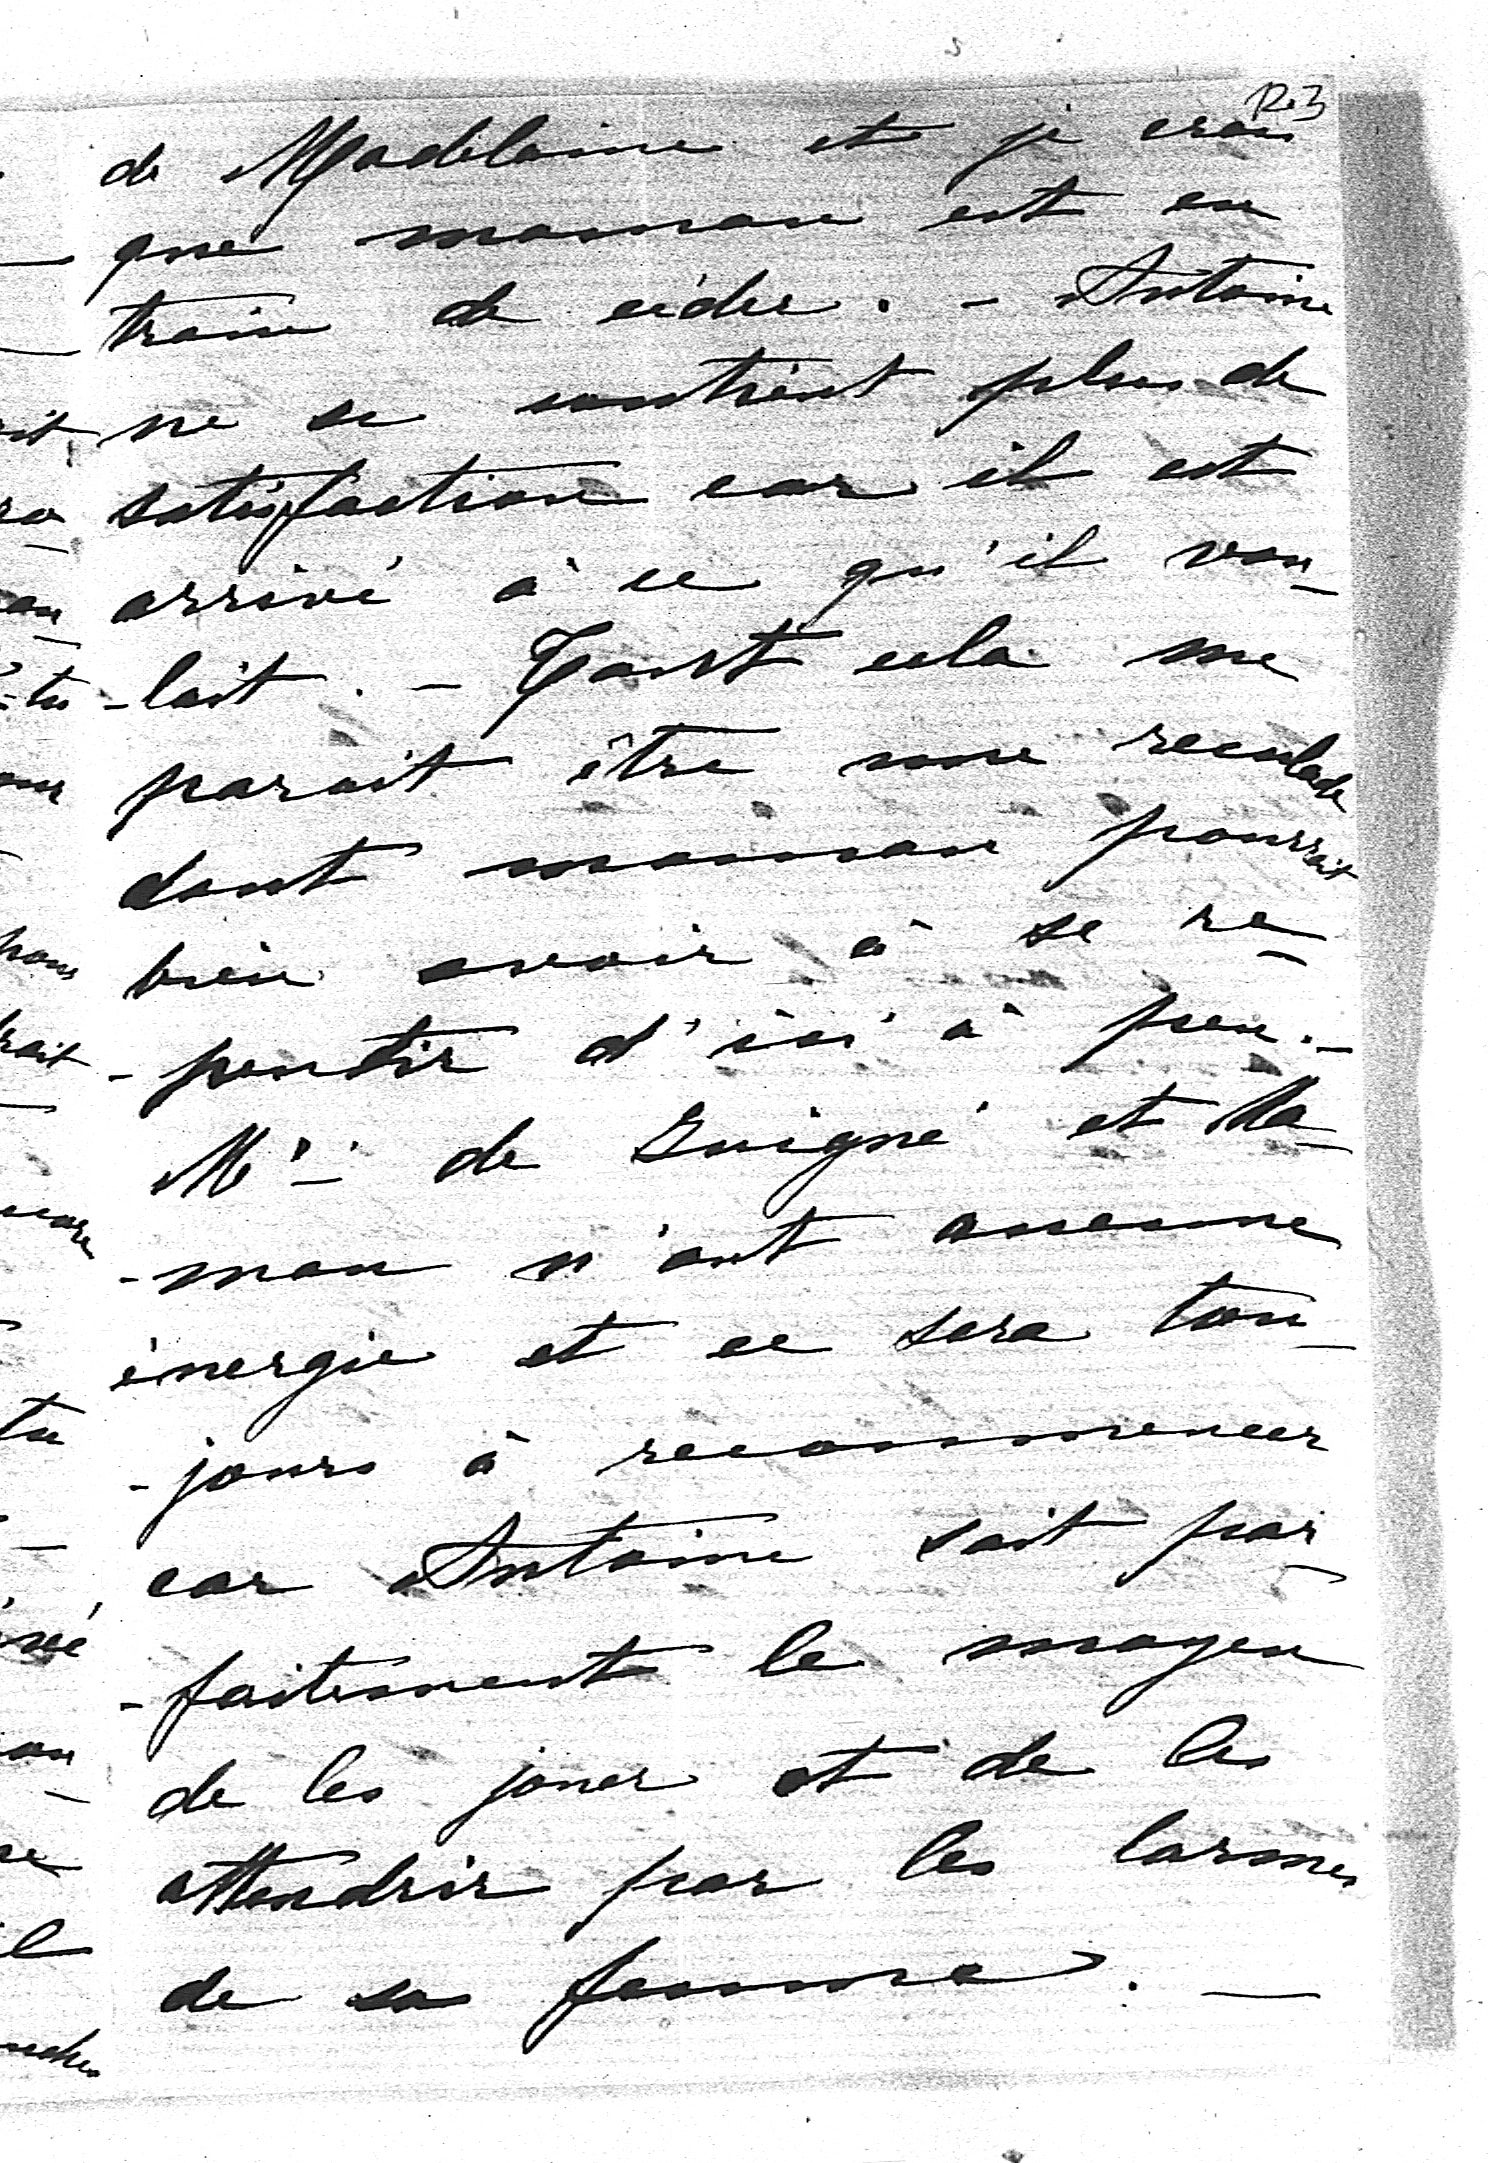 P.3
de Madelaine et je crois
que maman est en
train de céder. - Antoine
ne se contient plus de
satisfaction car il est
arrivé à ce qu'il vou-
-lait. - Tout cela me
parait être une reculade
dont maman pourrait
bien avoir à se re-
-pentir d'ici à peu. -
Mr de Guigné et Ma-
-man n'ont aucune
énergie et ce sera tou-
-jours à recommencer
car Antoine sait par-
-faitement le moyen
de les jouer et de les
attendrir par les larmes
de sa femme. -